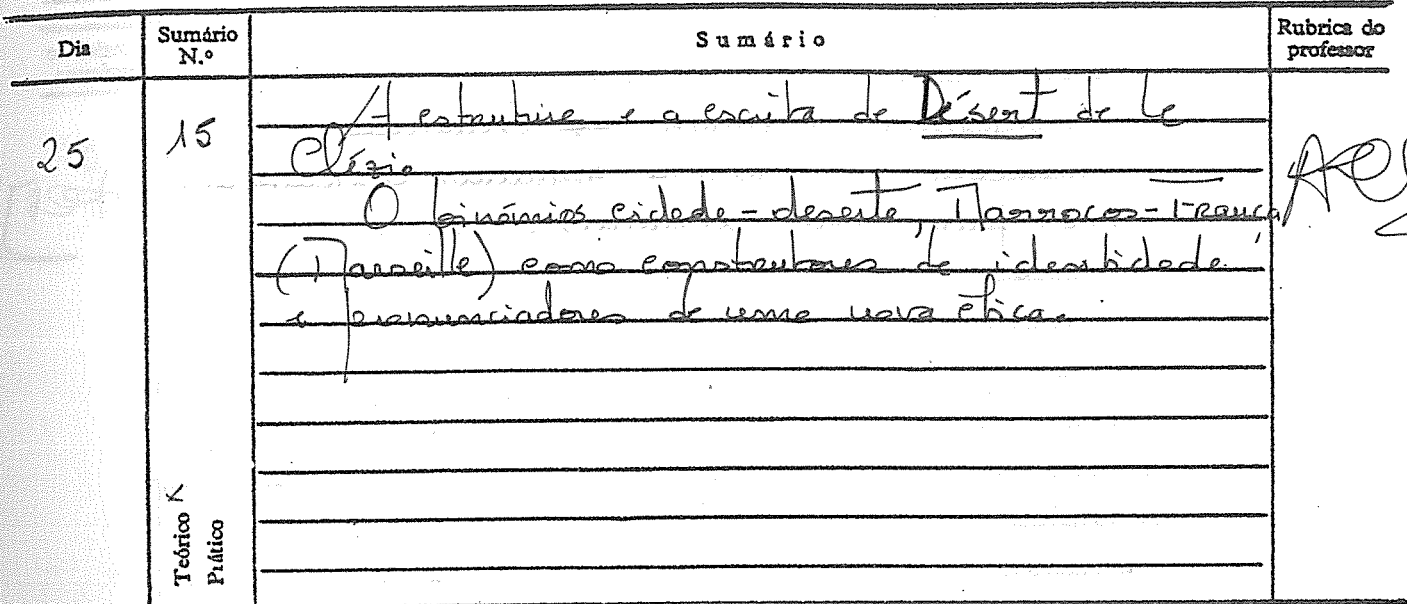 Dia Sumário N.º Sumário Rubrica do professor
25 15 A estrutura e a escrita de Désert de Le
Clézio
O binómios cidade-deserto, Marrocos-França
(Marseille) como construtores de identidade
e pronunciadores de uma nova ética.
Teórico X
Prático